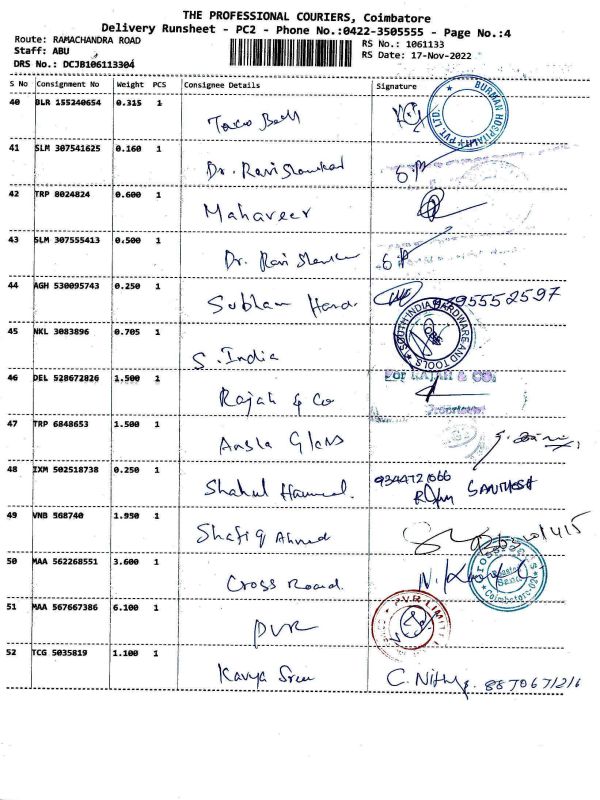 THE PROFESSIONAL COURIERS, Coimbatore
Delivery Runsheet - PC2 - Phone No.:0422-3505555 - Page No.:4
Route: RAMACHANDRA ROAD
RS No.: 1061133
Staff: ABU
RS Date: 17-Nov-2022
DRS No.: DCJB106113304
S No Consignment No Weight PCS Consignee Details Signature
40 BLR 155240654 0.315 1 Taco Bell
BURMAN HOSPITALITY PVT. LTD.
41 SLM 307541625 0.160 1 Dr. Ravi Shankar
42 TRP 8024824 0.600 1 Mahaveer
43 SLM 307555413 0.500 1 Dr. Ravi Shankar
44 AGH 530095743 0.250 1 Subham Hard.
45 NKL 3083896 0.705 1 S. India
SOUTH INDIA HARDWARE AND TOOLS
CBE
46 DEL 528672826 1.500 1 Rajah & Co
For RAJAH & CO.
Proprietor
47 TRP 6848653 1.500 1 Ansla Glass
48 IXM 502518738 0.250 1 Shahul Hameed. SANTHOSH
49 VNB 568740 1.950 1 Shafiq Ahmed
50 MAA 562268551 3.600 1 Cross Road.
51 MAA 567667386 6.100 1 PVR
P.V.R LIMITED
52 TCG 5035819 1.100 1 Kavya Sree C. Nithya.